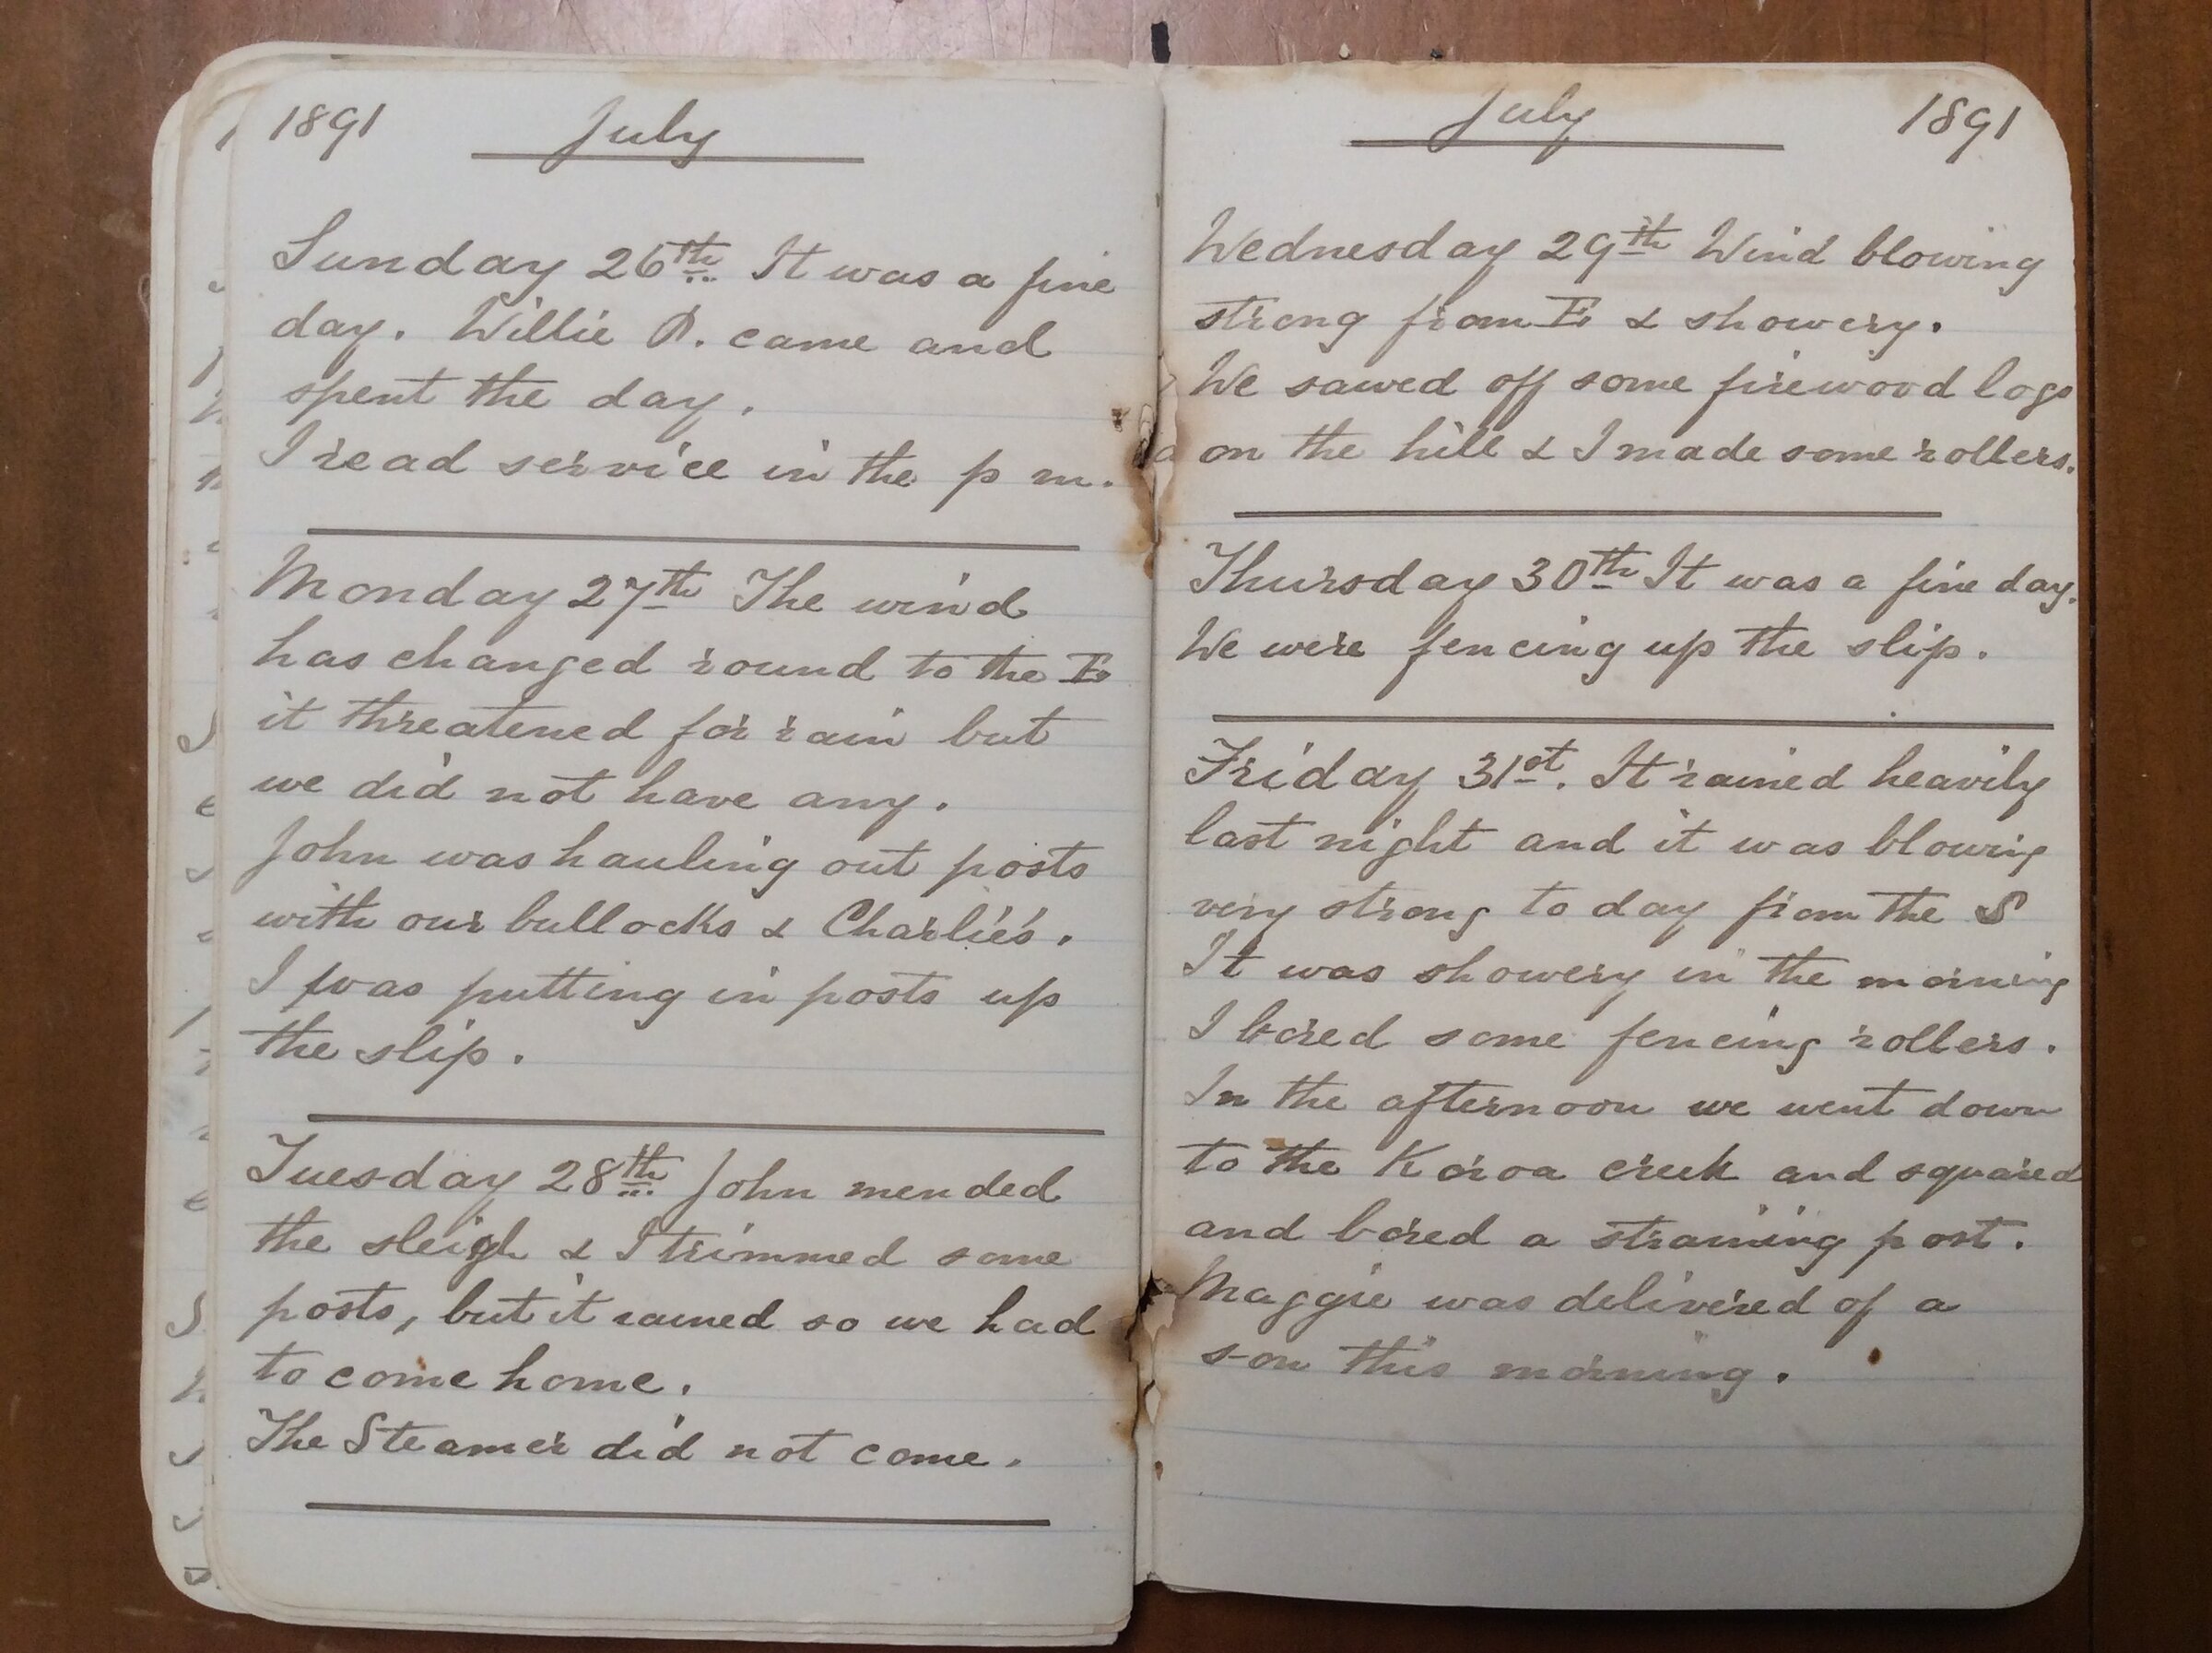 1891 July
Sunday 26th It was a fine
day. Willie P. came and
spent the day.
I read service in the p m.
Monday 27th The wind
has changed round to the E
it threatened for rain but
we did not have any.
John was hauling out posts
with our bullocks & Charlie's.
I was putting in posts up
the slip.
Tuesday 28th John mended
the sleigh & I trimmed some
posts, but it rained so we had
to come home.
The Steamer did not come.
July 1891
Wednesday 29th Wind blowing
strong from E & showery.
We sawed off some firewood logs
on the hill & I made some rollers.
Thursday 30th It was a fine day.
We were fencing up the slip.
Friday 31st. It rained heavily
last night and it was blowing
very strong to day from the S
It was showery in the morning
I bored some fencing rollers.
In the afternoon we went down
to the Koroa creek and squared
and bored a straining post.
Maggie was delivered of a
son this morning.